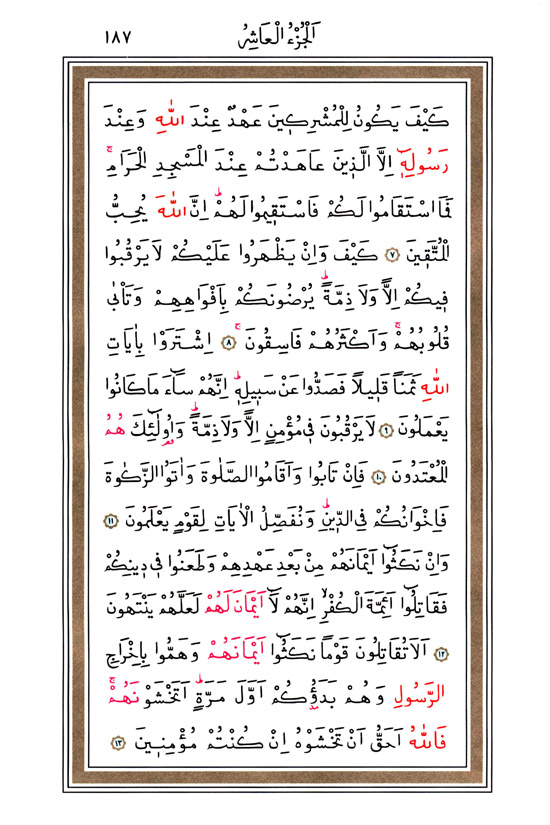 اَلْجُزْءُ الْعَاشِرُ ١٨٧
كَيْفَ يَكُونُ لِلْمُشْرِكِينَ عَهْدٌ عِنْدَ اللّٰهِ وَعِنْدَ
رَسُولِهِٓ اِلَّا الَّذِينَ عَاهَدْتُمْ عِنْدَ الْمَسْجِدِ الْحَرَامِۚ
فَمَا اسْتَقَامُوا لَكُمْ فَاسْتَقِيمُوا لَهُمْۜ اِنَّ اللّٰهَ يُحِبُّ
الْمُتَّقِينَ ﴿٧﴾ كَيْفَ وَاِنْ يَظْهَرُوا عَلَيْكُمْ لَا يَرْقُبُوا
فِيكُمْ اِلًّا وَلَا ذِمَّةًۜ يُرْضُونَكُمْ بِاَفْوَاهِهِمْ وَتَأْبٰى
قُلُوبُهُمْۚ وَاَكْثَرُهُمْ فَاسِقُونَۚ ﴿٨﴾ اِشْتَرَوْا بِاٰيَاتِ
اللّٰهِ ثَمَنًا قَلِيلًا فَصَدُّوا عَنْ سَبِيلِهِۜ اِنَّهُمْ سَٓاءَ مَا كَانُوا
يَعْمَلُونَ ﴿٩﴾ لَا يَرْقُبُونَ فِي مُؤْمِنٍ اِلًّا وَلَا ذِمَّةًۜ وَاُو۬لٰٓئِكَ هُمُ
الْمُعْتَدُونَ ﴿١٠﴾ فَاِنْ تَابُوا وَاَقَامُوا الصَّلٰوةَ وَاٰتَوُا الزَّكٰوةَ
فَاِخْوَانُكُمْ فِي الدِّينِۜ وَنُفَصِّلُ الْاٰيَاتِ لِقَوْمٍ يَعْلَمُونَ ﴿١١﴾
وَاِنْ نَكَثُٓوا اَيْمَانَهُمْ مِنْ بَعْدِ عَهْدِهِمْ وَطَعَنُوا فِي دِينِكُمْ
فَقَاتِلُٓوا اَئِمَّةَ الْكُفْرِۙ اِنَّهُمْ لَٓا اَيْمَانَ لَهُمْ لَعَلَّهُمْ يَنْتَهُونَ
﴿١٢﴾ اَلَا تُقَاتِلُونَ قَوْمًا نَكَثُٓوا اَيْمَانَهُمْ وَهَمُّوا بِاِخْرَاجِ
الرَّسُولِ وَهُمْ بَدَؤُ۫كُمْ اَوَّلَ مَرَّةٍۜ اَتَخْشَوْنَهُمْۚ
فَاللّٰهُ اَحَقُّ اَنْ تَخْشَوْهُ اِنْ كُنْتُمْ مُؤْمِنِينَ ﴿١٣﴾